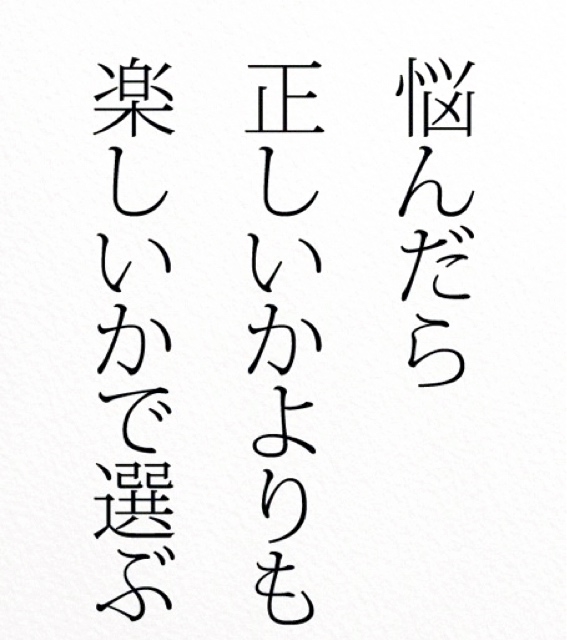 悩んだら
正しいかよりも
楽しいかで選ぶ